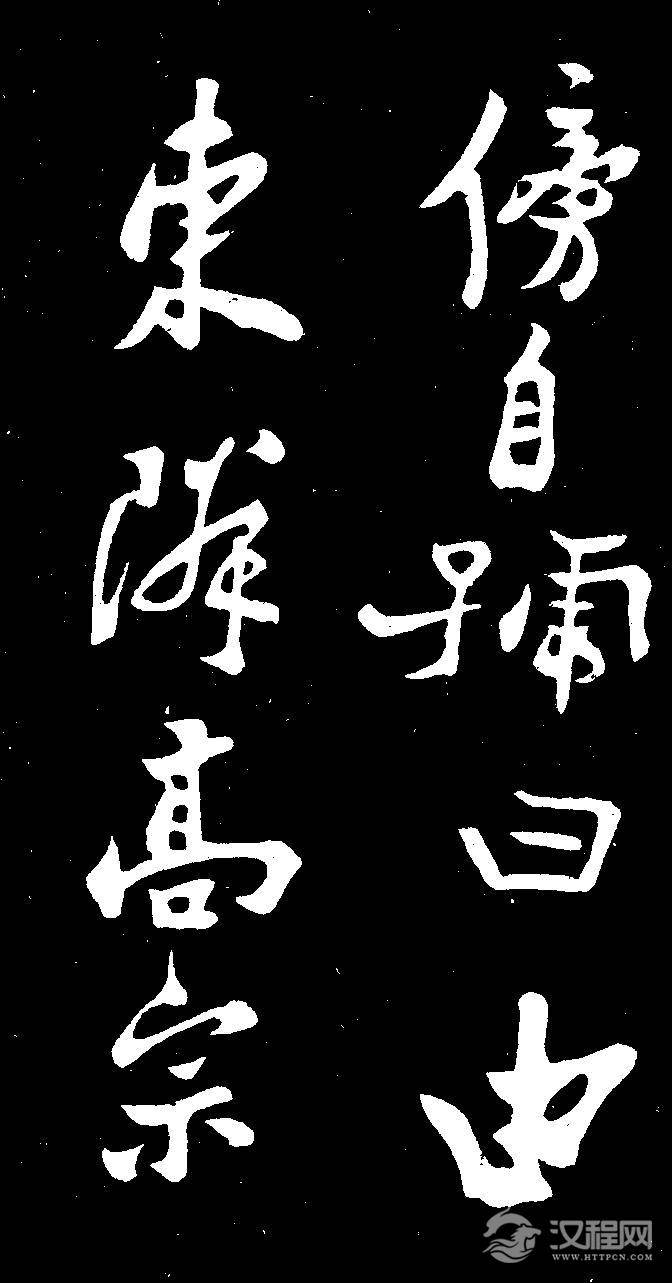 傍自號曰由
東隣高宗
汉程网
WWW.HTTPCN.COM